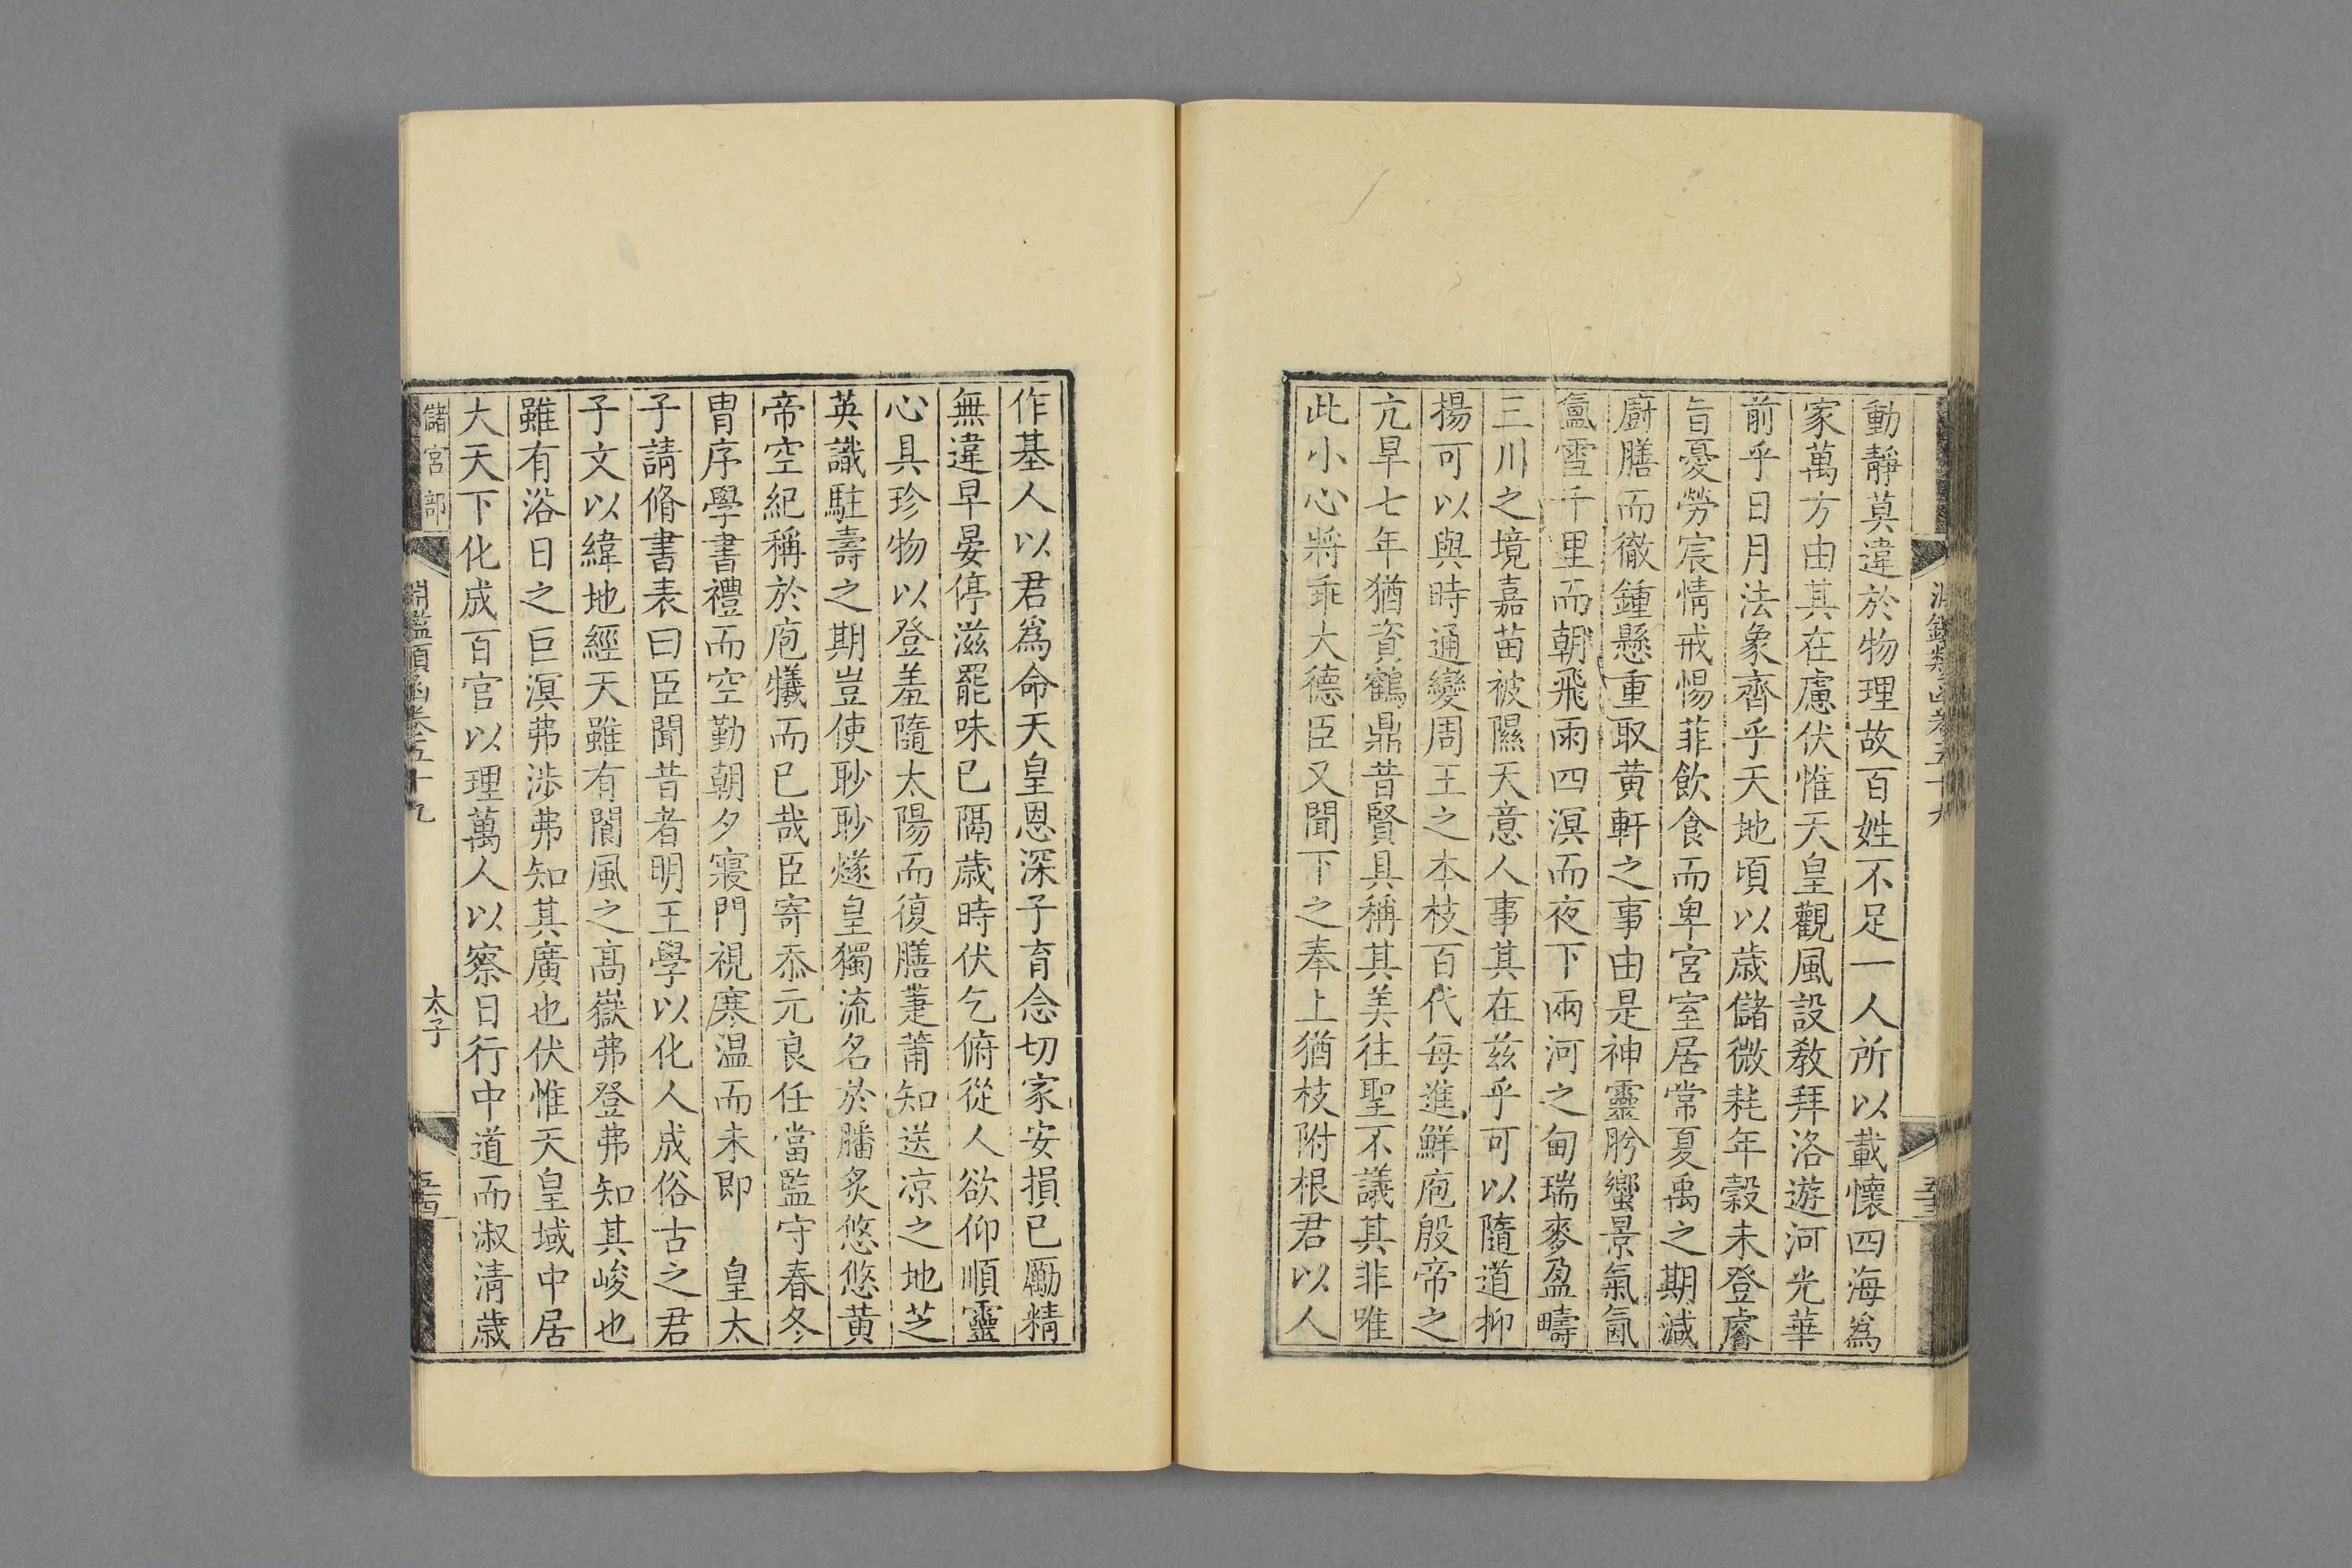 動靜莫違於物理故百姓不足一人所以載懷四海爲
家萬方由其在慮伏惟天皇觀風設教拜洛遊河光華
前乎日月法象齊乎天地頃以歲儲微耗年穀未登睿
旨憂勞宸情戒惕菲飲食而卑宮室居常夏禹之期減
廚膳而徹鍾懸重取黃軒之事由是神靈肸蠁景氣氤
氳雪千里而朝飛雨四溟而夜下兩河之甸瑞麥盈疇
三川之境嘉苗被隰天意人事其在兹乎可以隨道抑
揚可以與時通變周王之本枝百代每進鮮庖殷帝之
亢旱七年猶資鶴鼎昔賢具稱其美往聖不議其非唯
此小心將乖大德臣又聞下之奉上猶枝附根君以人
作基人以君爲命天皇恩深子育念切家安損已勵精
無違早晏停滋罷味已隔歲時伏乞俯從人欲仰順靈
心具珍物以登羞隨太陽而復膳萐莆知送凉之地芝
英識駐壽之期豈使眇眇燧皇獨流名於膰炙悠悠黃
帝空紀稱於庖犧而已哉臣寄忝元良任當監守春冬
冑序學書禮而空勤朝夕寢門視寒温而未即　皇太
子請脩書表曰臣聞昔者明王學以化人成俗古之君
子文以緯地經天雖有閬風之高嶽弗登弗知其峻也
雖有浴日之巨溟弗涉弗知其廣也伏惟天皇域中居
大天下化成百官以理萬人以察日行中道而淑清歲
儲宮部
淵鑑類函卷五十九
太子